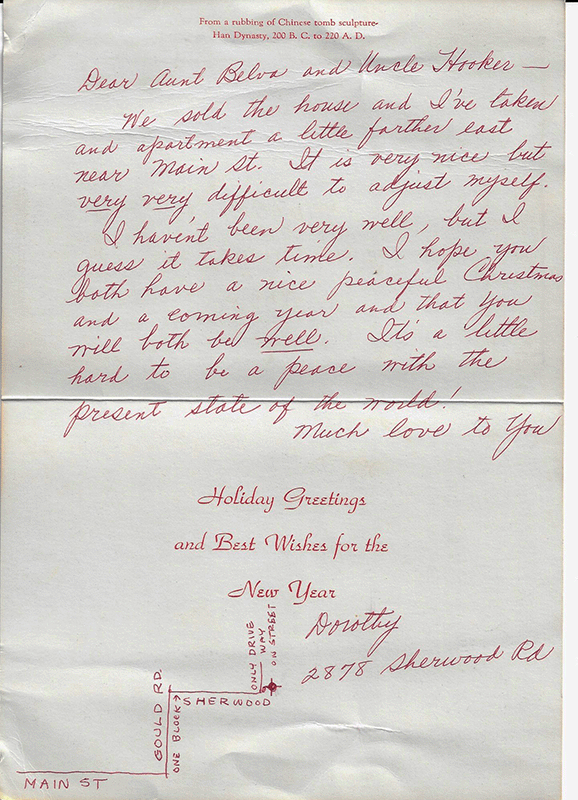 From a rubbing of Chinese tomb sculpture-
Han Dynasty, 200 B. C. to 220 A. D.
Dear Aunt Belva and Uncle Hooker –
We sold the house and I've taken
and apartment a little farther east
near Main St. It is very nice but
very very difficult to adjust myself.
I haven't been very well, but I
guess it takes time. I hope you
both have a nice peaceful Christmas
and a coming year and that you
will both be well. It's a little
hard to be a peace with the
present state of the world!
Much love to You
Holiday Greetings
and Best Wishes for the
New Year
Dorothy
2878 Sherwood Rd
ONLY DRIVE
WAY
ON STREET
SHERWOOD
GOULD RD.
ONE BLOCK →
MAIN ST